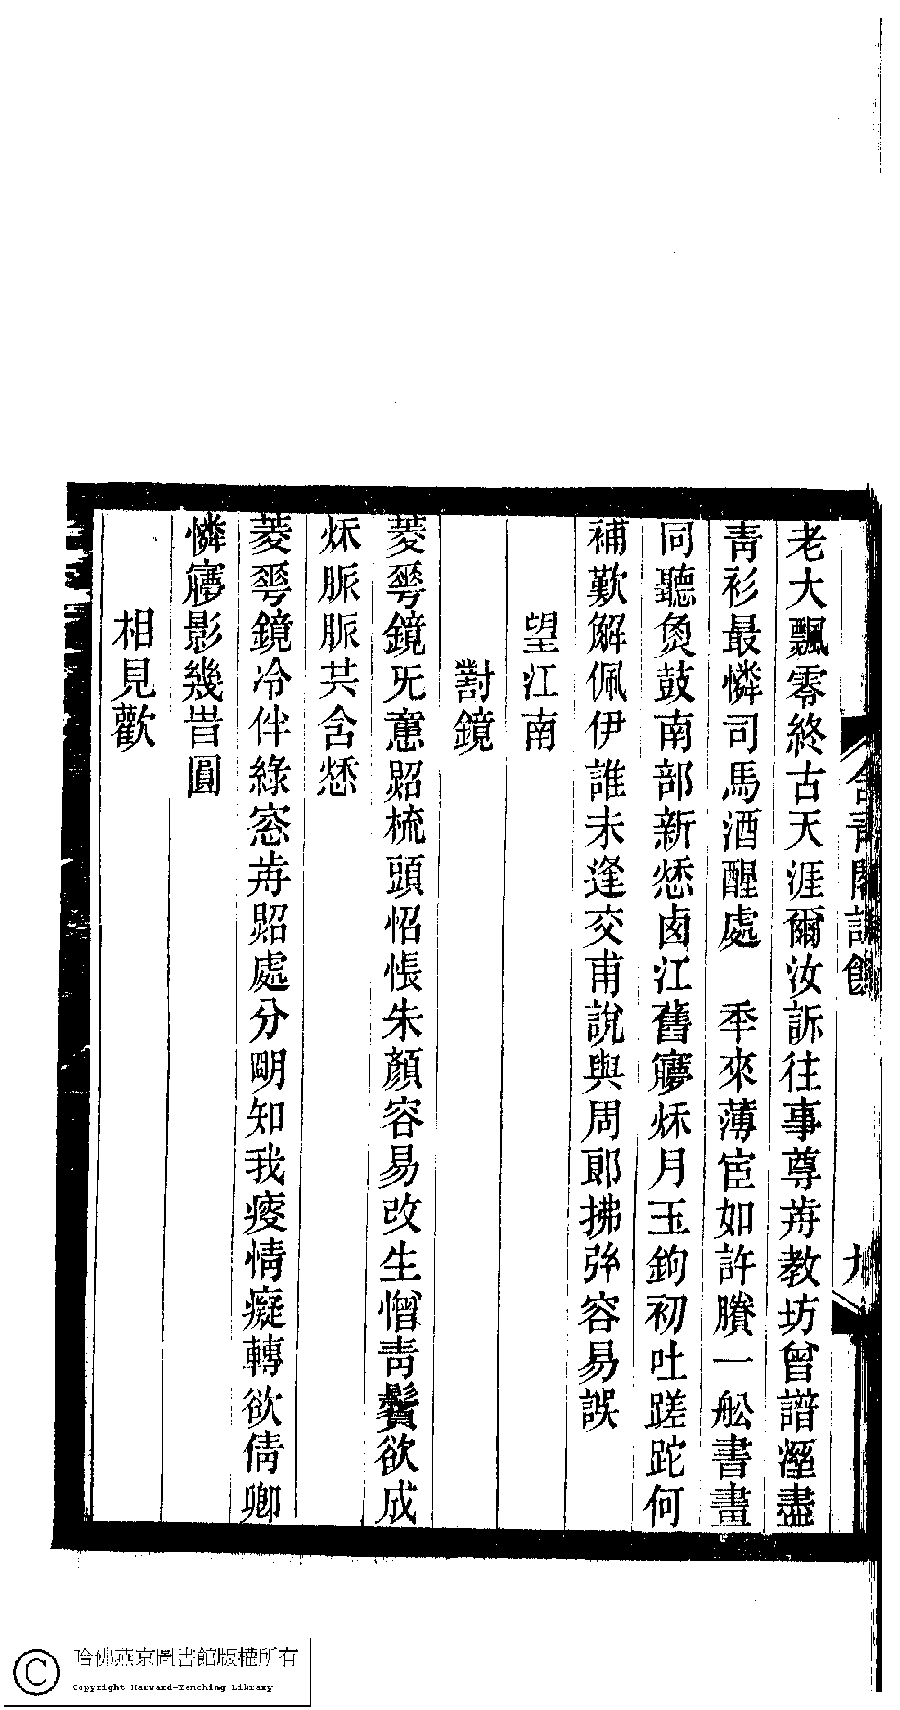 老大飄零終古天涯爾汝訴往事尊歬教坊曾譜溼盡
靑衫最憐司馬酒醒處　秊來薄宦如許賸一舩書畫
同聽僛鼓南部新愁㢴江舊㝱秌月玉鉤初吐蹉跎何
補歎解佩伊誰未逢交甫說與周郞拂弦容易誤
望江南
對鏡
菱琴鏡旡意照梳頭怊悵朱顏容易改生憎靑鬢欲成
秌脈脈共含愁
菱琴鏡冷伴綠窓歬照處分朙知我瘦情癡轉欲倩卿
憐㝱影幾旹圓
相見歡
含靑閣詩餘
九
哈佛燕京圖書館版權所有
Copyright Harvard-Yenching Library